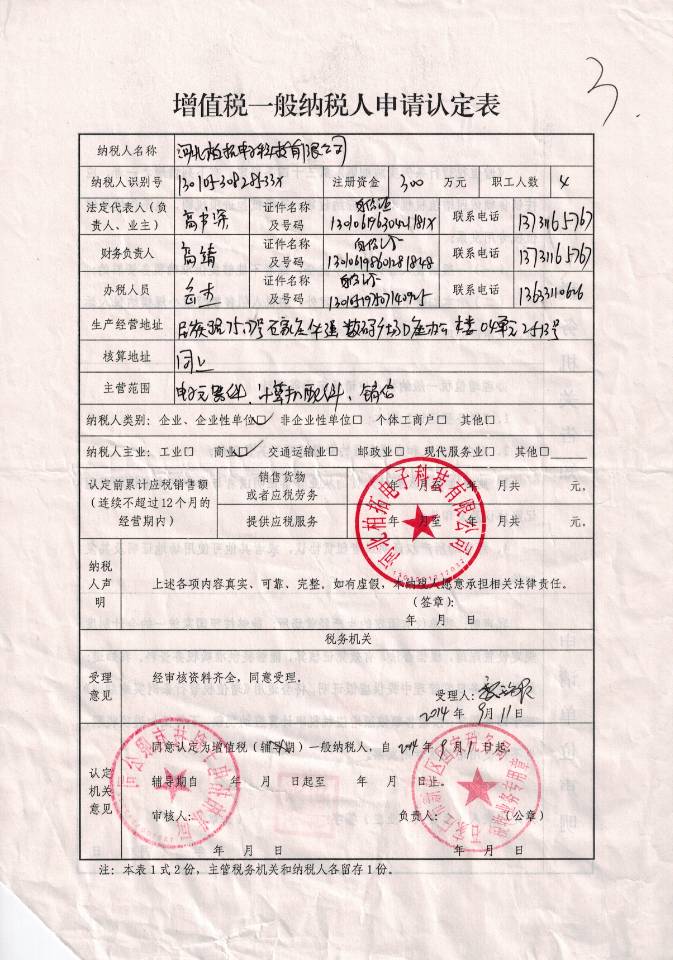 3
增值税一般纳税人申请认定表
纳税人名称 河北柏拓电子科技有限公司
纳税人识别号 13010530828533X 注册资金 300 万元 职工人数 4
法定代表人（负责人、业主） 证件名称及号码 身份证 13010619630421181X 联系电话 13731165767
财务负责人 高靖 证件名称及号码 身份证 联系电话 13731165767
办税人员 岳杰 证件名称及号码 身份证 联系电话 13633110626
生产经营地址
核算地址 同上
主营范围 电子元器件、计算机配件、销售
纳税人类别：企业、企业性单位☑ 非企业性单位□ 个体工商户□ 其他□
纳税人主业：工业□ 商业☑ 交通运输业□ 邮政业□ 现代服务业□ 其他□
认定前累计应税销售额（连续不超过12个月的经营期内） 销售货物或者应税劳务 年 月至 年 月共 元。
提供应税服务 年 月至 年 月共 元。
河北柏拓电子科技有限公司
纳税人声明 上述各项内容真实、可靠、完整。如有虚假，本纳税人愿意承担相关法律责任。
（签章）：
年 月 日
税务机关
受理意见 经审核资料齐全，同意受理。
受理人：
2014 年 9 月 11 日
认定机关意见 同意认定为增值税（辅导期）一般纳税人，自 2014 年 9 月 1 日起。
辅导期自 年 月 日起至 年 月 日止。
审核人： 负责人： （公章）
年 月 日 年 月 日
注：本表1式2份，主管税务机关和纳税人各留存1份。